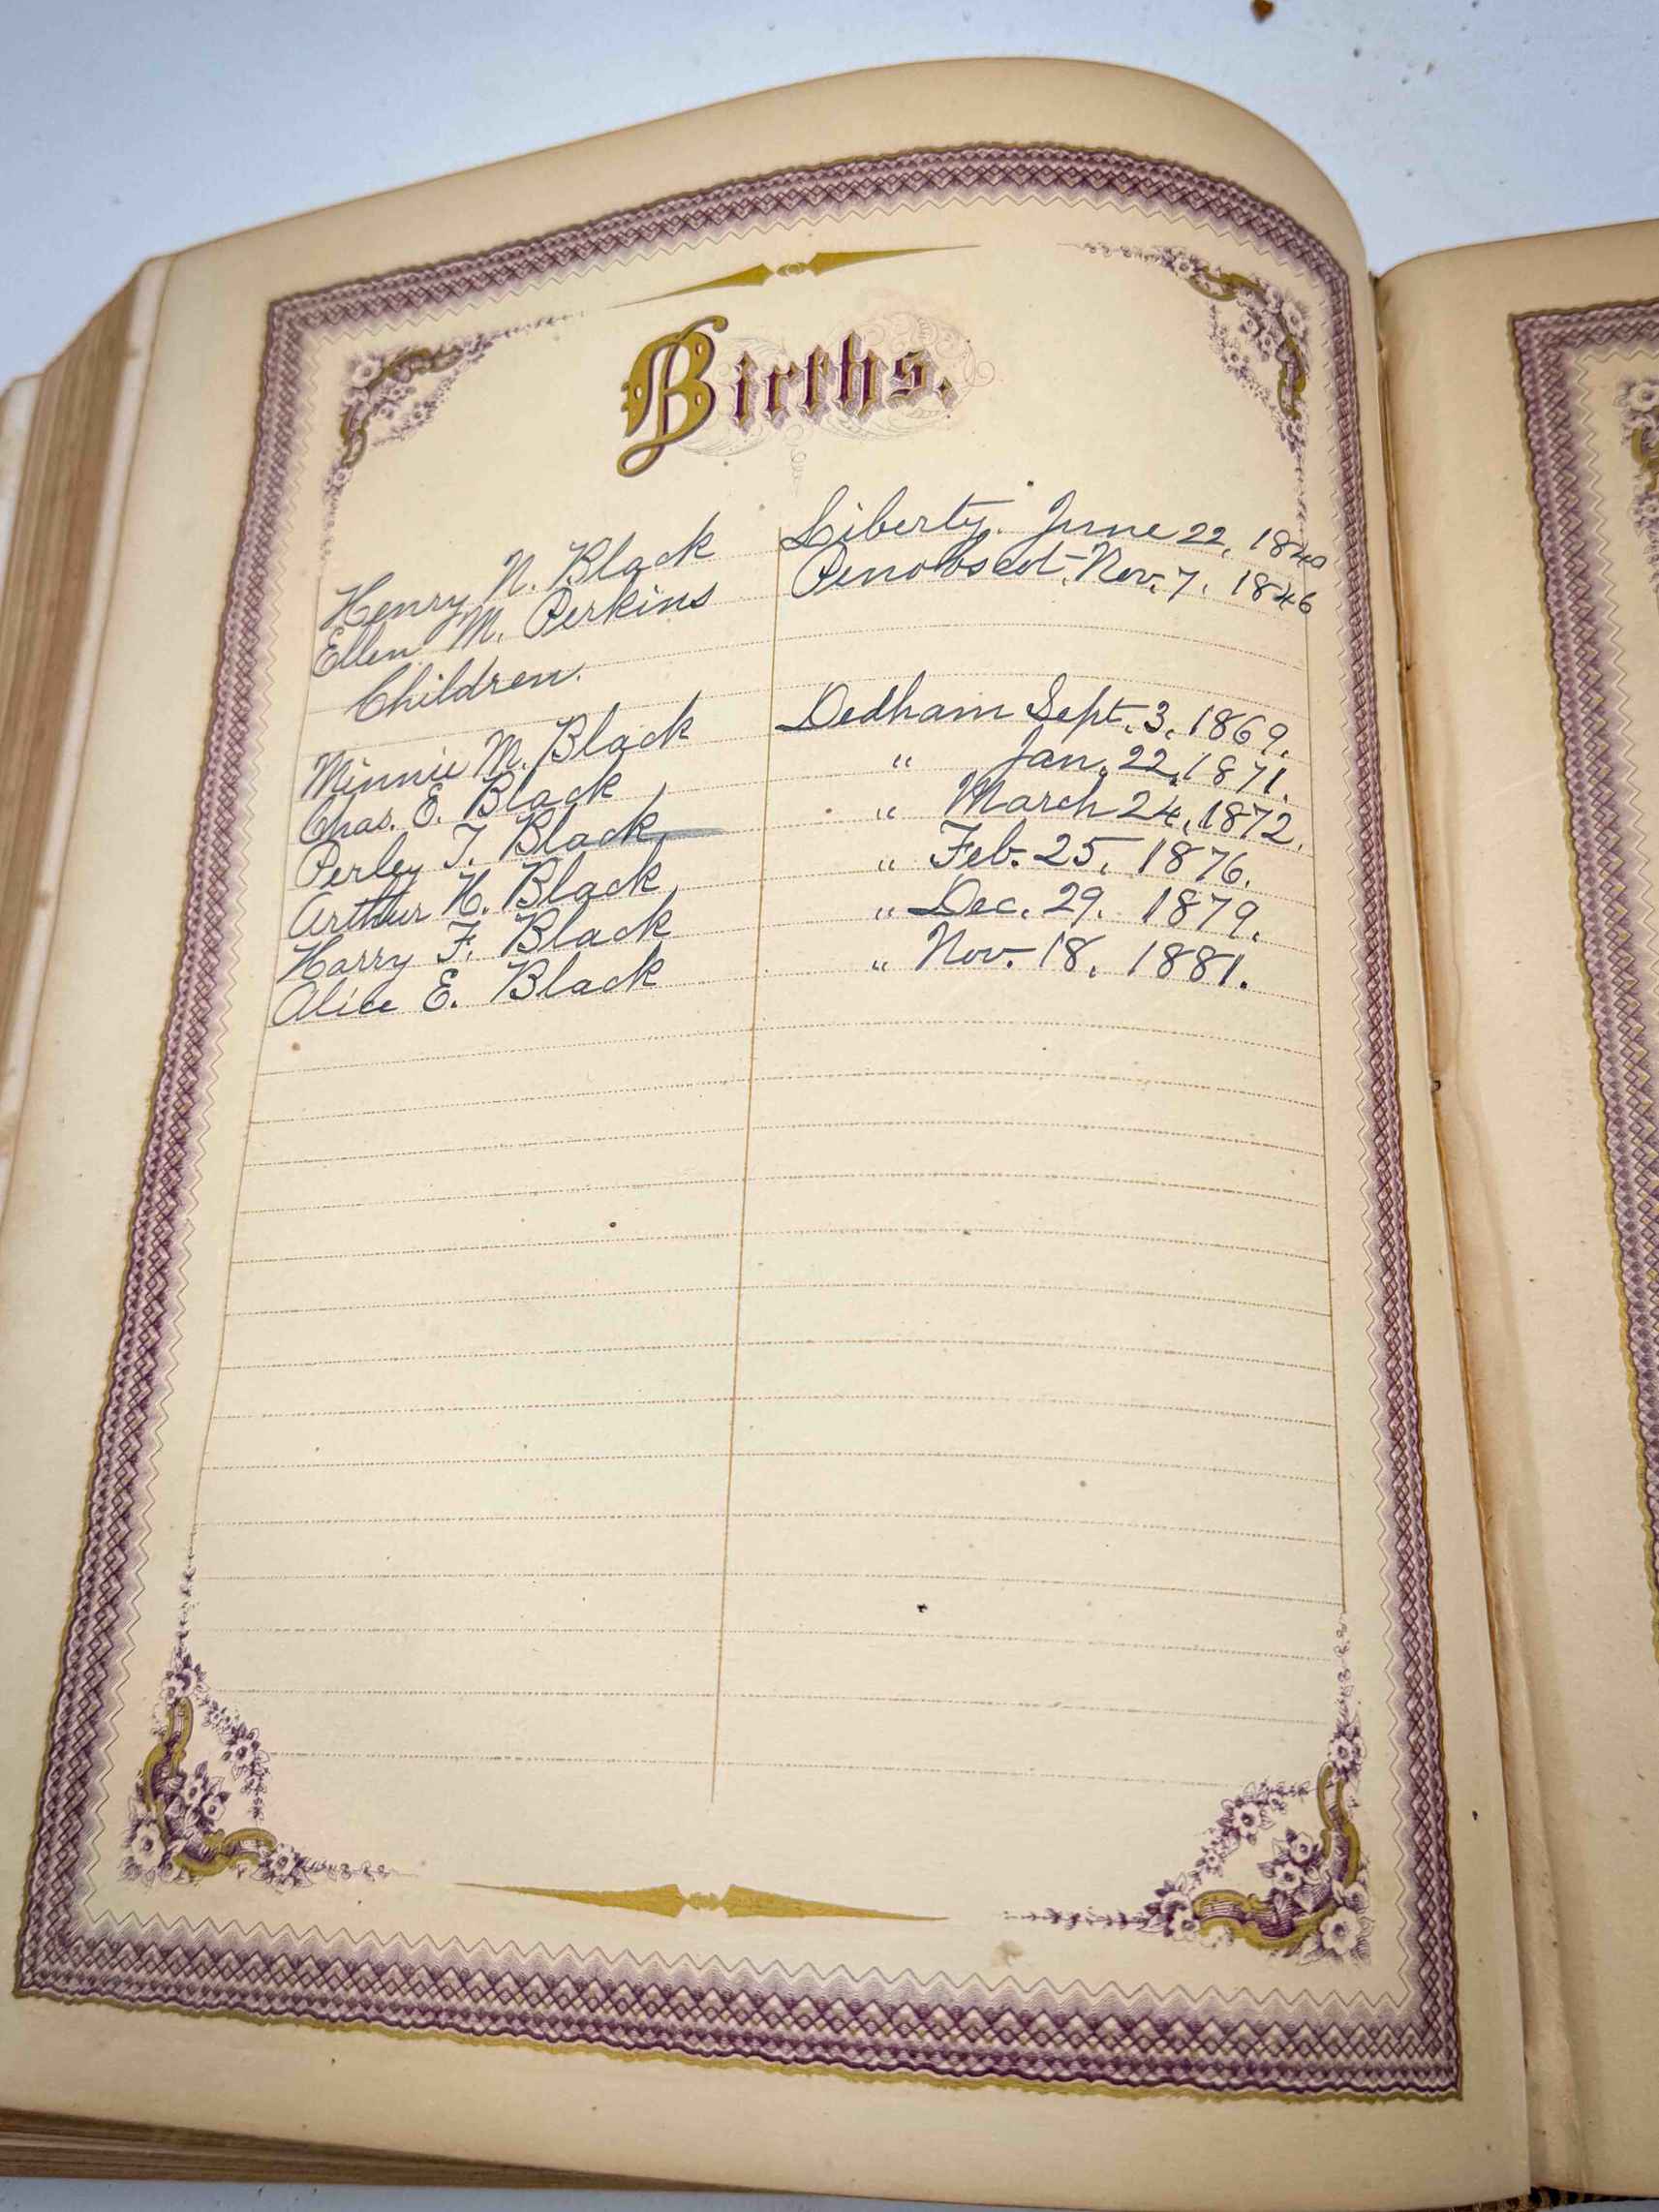 Births.
Henry N. Black Liberty. June 22, 1840
Ellen M. Perkins Penobscot. Nov. 7. 1846
Children.
Minnie M. Black Dedham Sept. 3, 1869.
Chas. E. Black " Jan. 22, 1871.
Perley T. Black " March 24, 1872.
Arthur H. Black " Feb. 25, 1876.
Harry F. Black " Dec. 29. 1879.
Alice E. Black " Nov. 18, 1881.